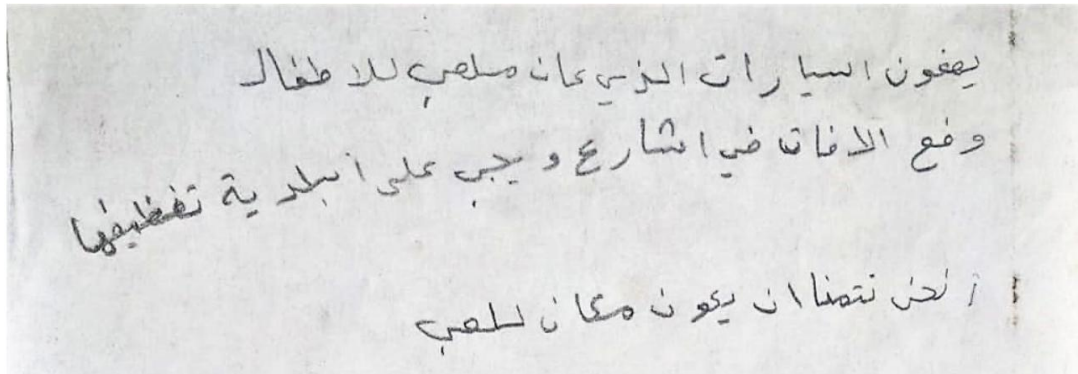 يصفون السيارات الذي كان ملعب للاطفال
وضع الافات في الشارع ويجب على ابلدية تنظيفها
نحن نتمنا ان يكون مكان للعب